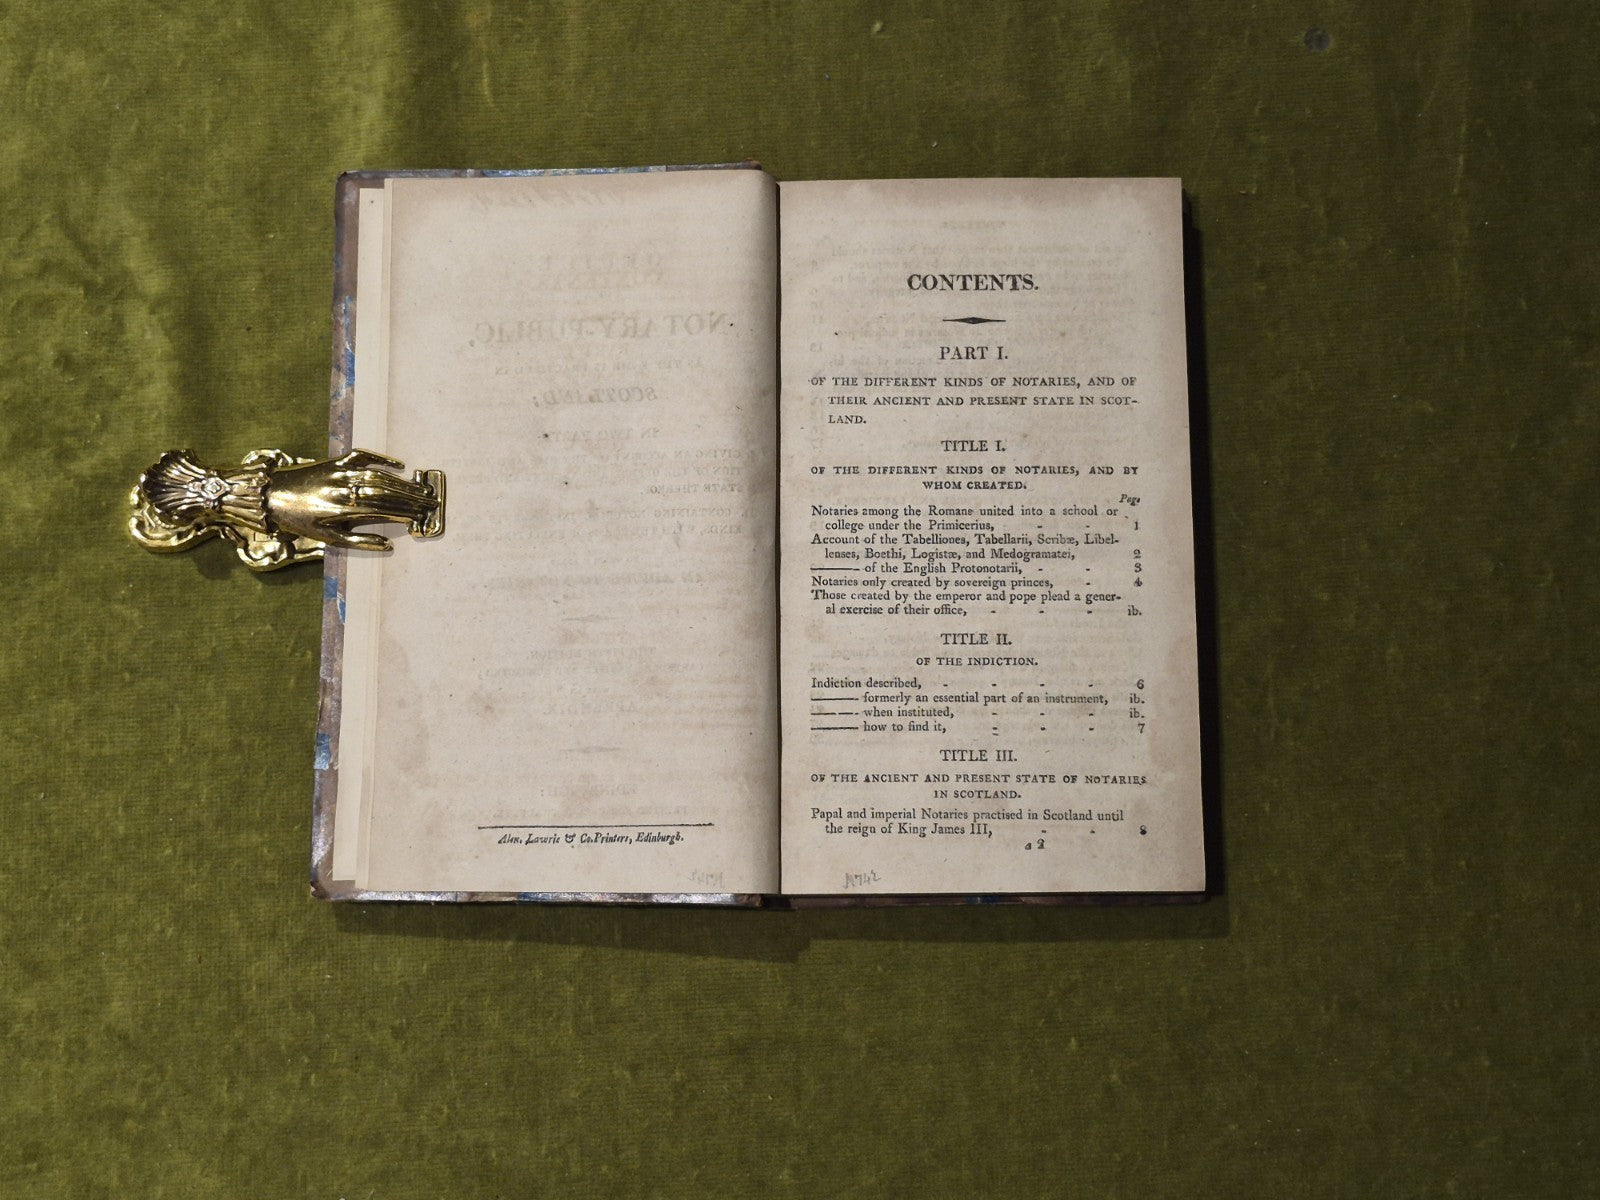 Alex. Lawrie & Co. Printers, Edinburgh.
CONTENTS.
PART I.
OF THE DIFFERENT KINDS OF NOTARIES, AND OF
THEIR ANCIENT AND PRESENT STATE IN SCOT-
LAND.
TITLE I.
OF THE DIFFERENT KINDS OF NOTARIES, AND BY
WHOM CREATED.
Page
Notaries among the Romans united into a school or
college under the Primicerius, - - 1
Account of the Tabelliones, Tabellarii, Scribæ, Libel-
lenses, Boethi, Logistæ, and Medogramatei, 2
——— of the English Protonotarii, - - 3
Notaries only created by sovereign princes, - 4
Those created by the emperor and pope plead a gener-
al exercise of their office, - - - ib.
TITLE II.
OF THE INDICTION.
Indiction described, - - - - 6
——— formerly an essential part of an instrument, ib.
——— when instituted, - - - ib.
——— how to find it, - - - 7
TITLE III.
OF THE ANCIENT AND PRESENT STATE OF NOTARIES
IN SCOTLAND.
Papal and imperial Notaries practised in Scotland until
the reign of King James III, - - 8
a 2